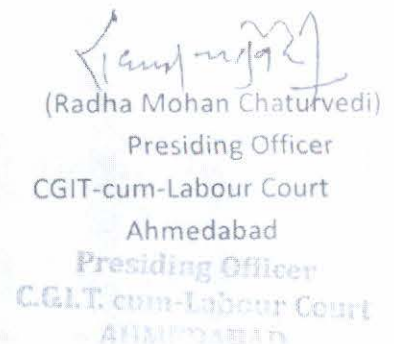 (Radha Mohan Chaturvedi)
Presiding Officer
CGIT-cum-Labour Court
Ahmedabad
Presiding Officer
C.G.I.T. cum-Labour Court
AHMEDABAD